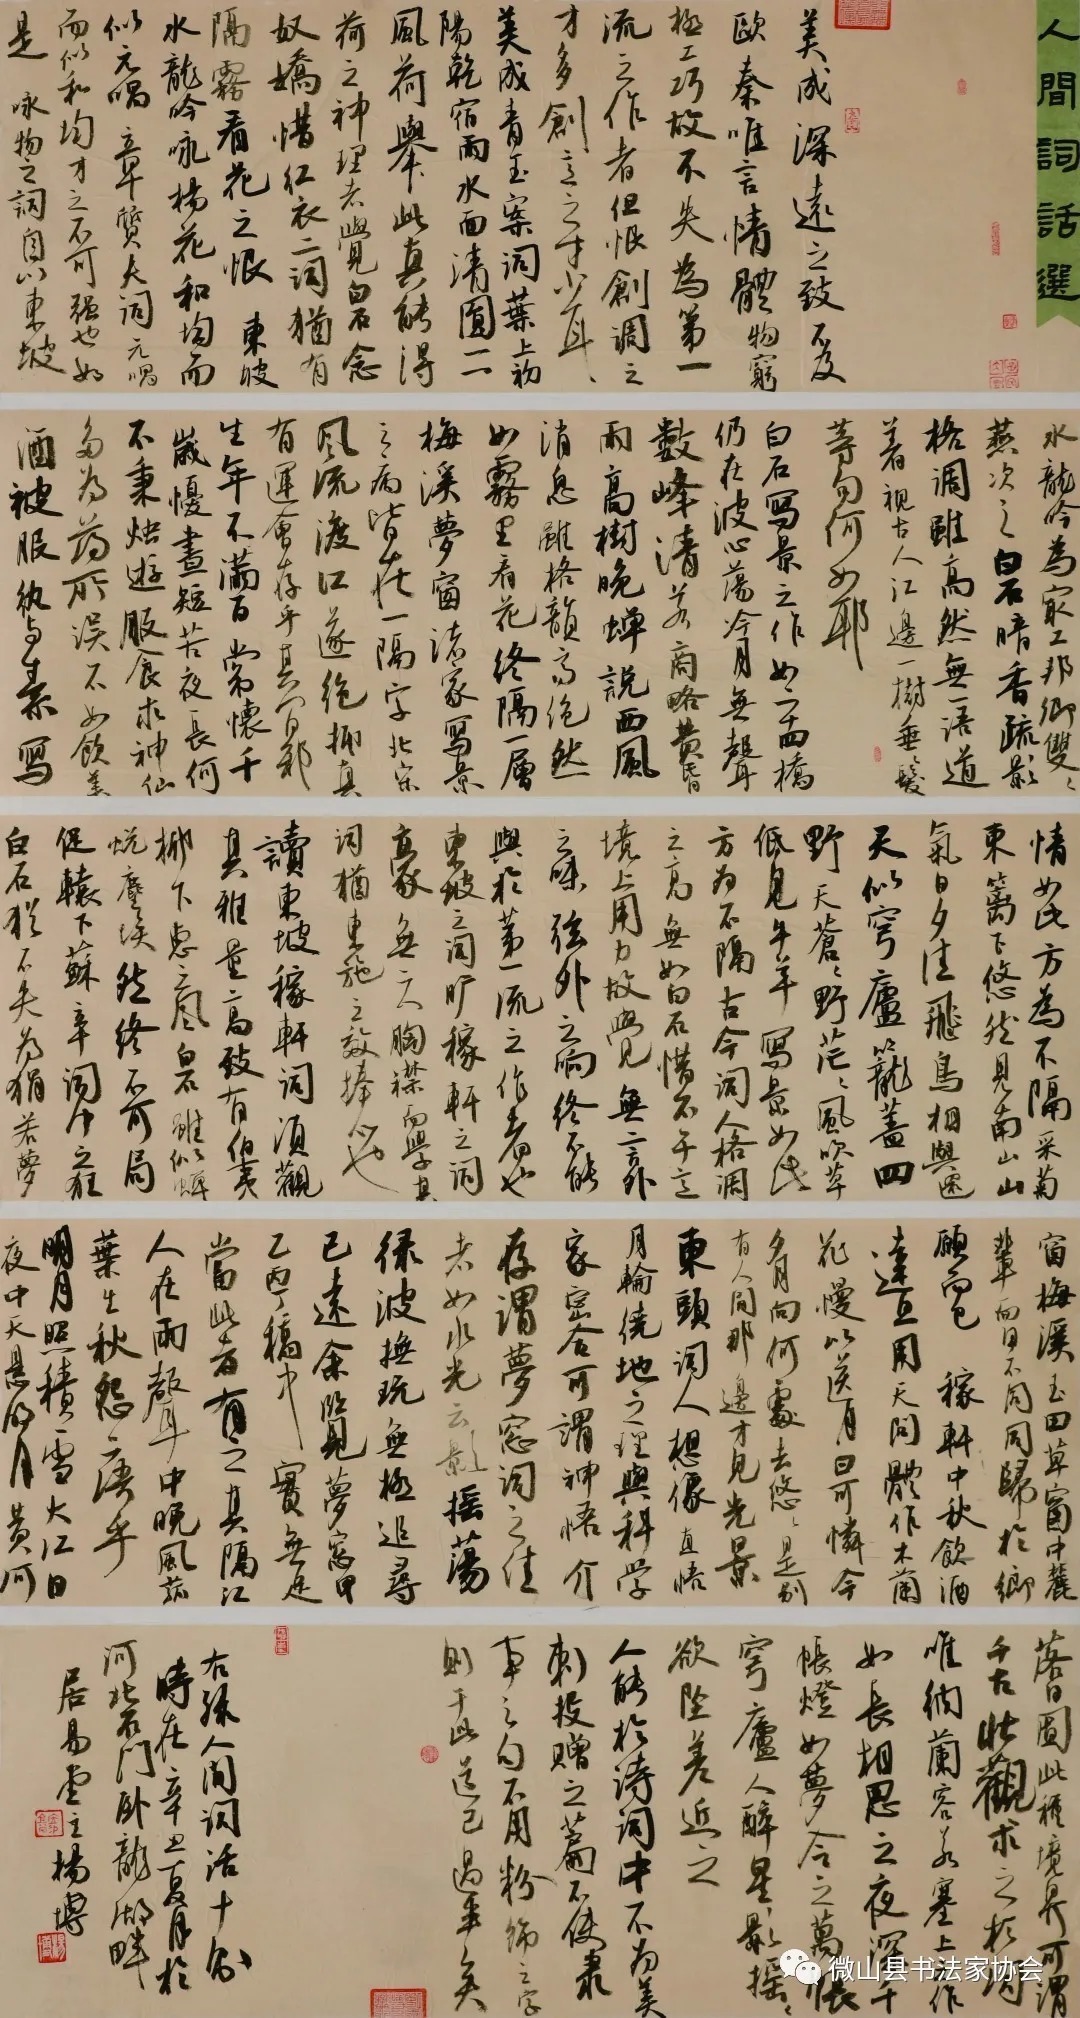 人間詞話選
美成深遠之致不及
歐秦唯言情體物窮
極工巧故不失為第一
流之作者但恨創調之
才多創意之才少耳
美成青玉案詞葉上初
陽乾宿雨水面清圓一一
風荷舉此真能得
荷之神理者覺白石念
奴嬌惜紅衣二詞猶有
隔霧看花之恨 東坡
水龍吟咏楊花和均而
似元唱章質夫詞元唱
而似和均才之不可強也如
是 咏物之詞自以東坡
水龍吟為最工邦卿雙々
燕次之白石暗香疏影
格調雖高然無一語道
着視古人江邊一樹垂々發
等句何如耶
白石寫景之作如二十四橋
仍在波心蕩冷月無聲
數峰清苦商略黃昏
雨高樹晚蟬說西風
消息雖格韻高絕然
如霧里看花終隔一層
梅溪夢窗諸家寫景
之病皆在一隔字北宋
風流渡江遂絕抑真
有運會存乎其間邪
生年不滿百常懷千
歲憂晝短苦夜長何
不秉燭遊服食求神仙
多為藥所誤不如飲美
酒被服紈與素寫
情如此方為不隔采菊
東籬下悠然見南山山
氣日夕佳飛鳥相與還
天似穹廬籠蓋四
野天蒼々野茫々風吹草
低見牛羊寫景如此
方為不隔古今詞人格調
之高無如白石惜不于意
境上用力故覺無言外
之味弦外之响終不能
與於第一流之作者也
東坡之詞曠稼軒之詞
豪無二人胸襟而學其
詞猶東施之效捧心也
讀東坡稼軒詞須觀
其雅量高致有伯夷
柳下惠之風白石雖似蟬
蛻塵埃然終不可局
促轅下蘇辛詞中之狂
白石猶不失為狷若夢
窗梅溪玉田草窗中麓
輩面目不同同歸於鄉
愿而已 稼軒中秋飲酒
達旦用天問體作木蘭
花慢以送月曰可憐今
夕月向何處去悠々是別
有人間那邊才見光景
東頭詞人想像直悟
月輪繞地之理與科學
家密合可謂神悟 介
存謂夢窗詞之佳
者如水光云影搖蕩
綠波撫玩無極追尋
已遠余覽夢窗甲
乙丙丁稿中 實無足
當此者有之其隔江
人在雨聲中晚風菰
葉生秋怨二語乎
明月照積雪大江日
夜中天懸明月黃河
落日圓此種境界可謂
千古壯觀求之於詞
唯納蘭容若塞上之作
如長相思之夜深千
帳燈如夢令之萬帳
穹廬人醉星影搖々
欲墜差近之
人能於詩詞中不為美
刺投贈之篇不使隸
事之句不用粉飾之字
則于此道已過半矣
右錄人間詞話十則
時在辛丑夏月於
河北石門卧龍湖畔
居易堂主楊博
微山县书法家协会